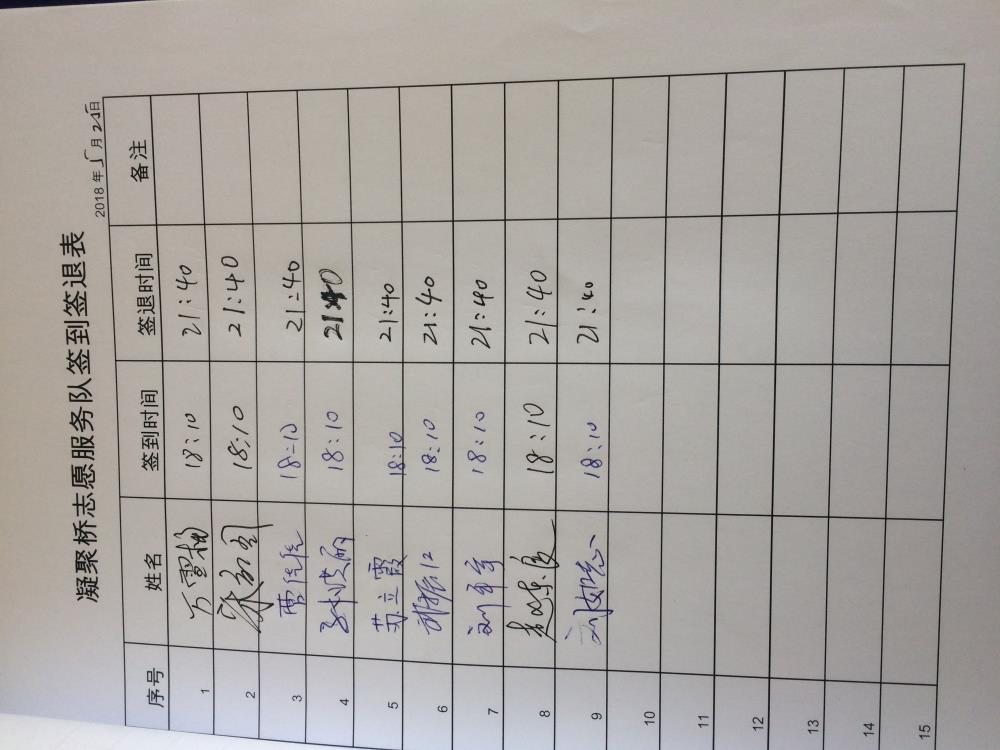 凝聚桥志愿服务队签到签退表
2018 年 5 月 25 日
序号 姓名 签到时间 签退时间 备注
1 万雪梅 18:10 21:40
2 18:10 21:40
3 曹佳佳 18:10 21:40
4 18:10 21:40
5 苏立霞 18:10 21:40
6 18:10 21:40
7 18:10 21:40
8 18:10 21:40
9 18:10 21:40
10
11
12
13
14
15